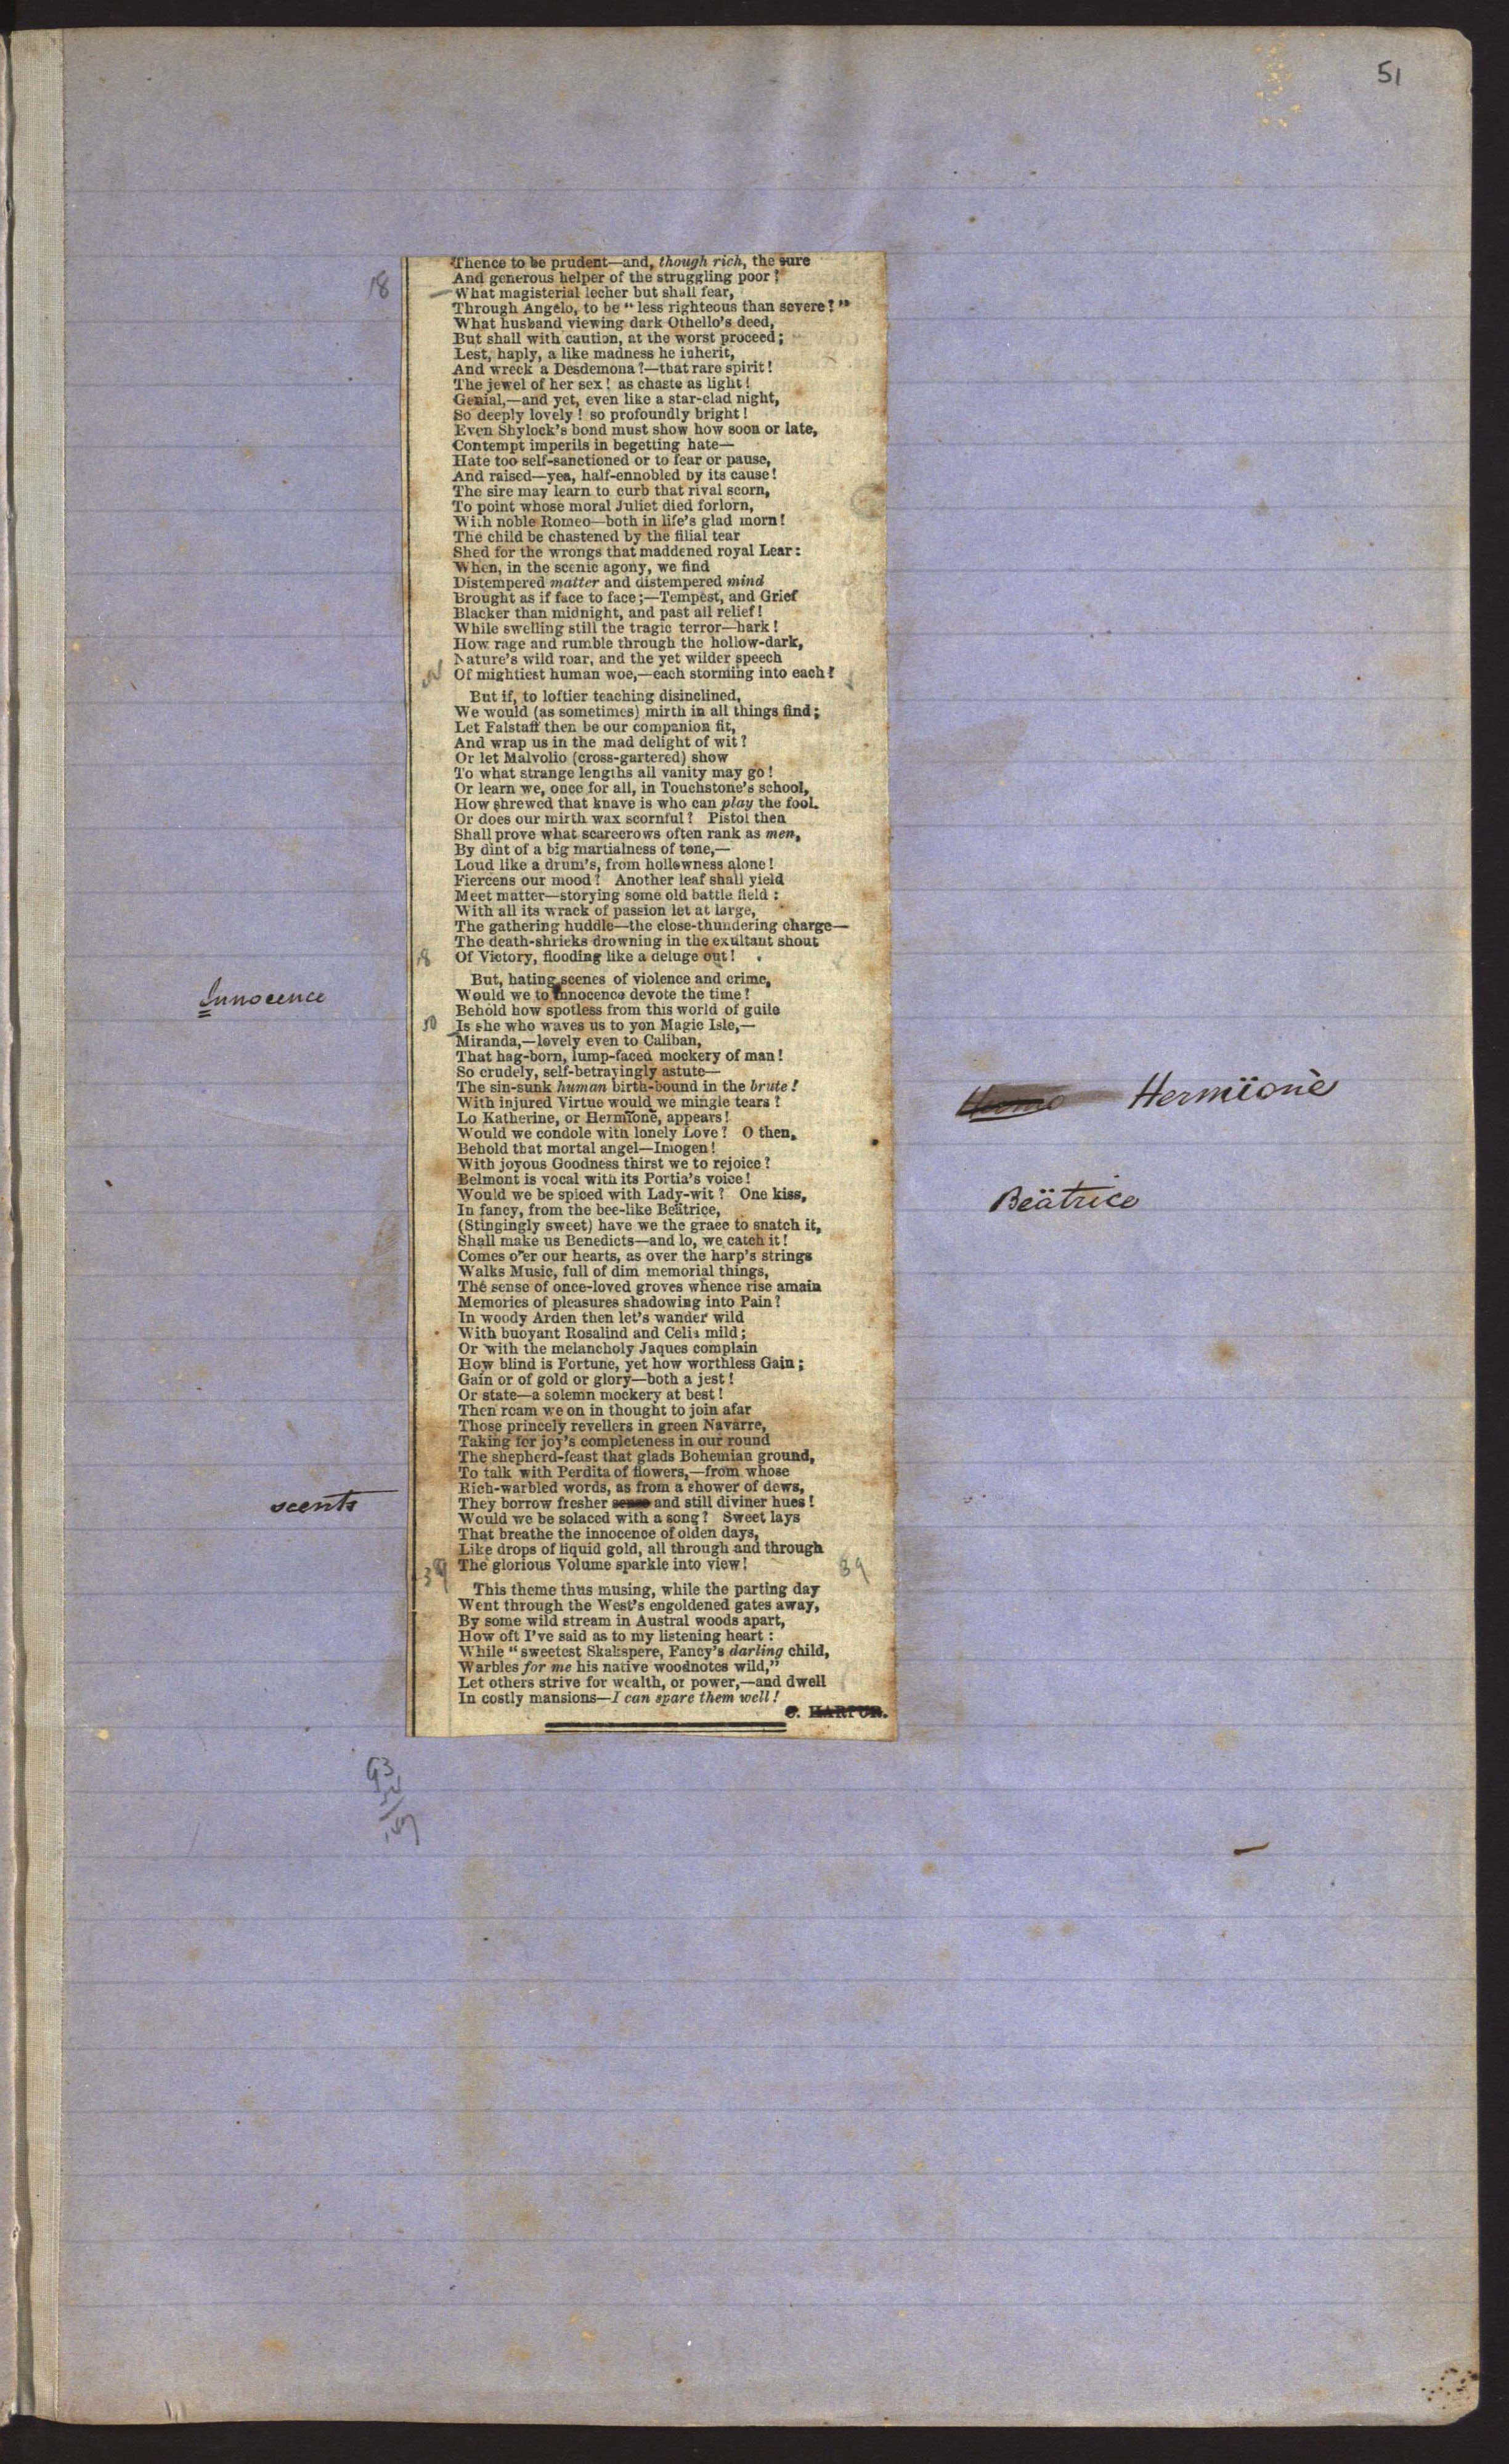 51
Thence to be prudent—and, though rich, the sure
18
And generous helper of the struggling poor?
What magisterial lecher but shall fear,
Through Angelo, to be "less righteous than severe?"
What husband viewing dark Othello's deed,
But shall with caution, at the worst proceed;
Lest, haply, a like madness he inherit,
And wreck a Desdemona?—that rare spirit!
The jewel of her sex! as chaste as light!
Genial,—and yet, even like a star-clad night,
So deeply lovely! so profoundly bright!
Even Shylock's bond must show how soon or late,
Contempt imperils in begetting hate—
Hate too self-sanctioned or to fear or pause,
And raised—yea, half-ennobled by its cause!
The sire may learn to curb that rival scorn,
To point whose moral Juliet died forlorn,
With noble Romeo—both in life's glad morn!
The child be chastened by the filial tear
Shed for the wrongs that maddened royal Lear:
When, in the scenic agony, we find
Distempered matter and distempered mind
Brought as if face to face;—Tempest, and Grief
Blacker than midnight, and past all relief!
While swelling still the tragic terror—hark!
How rage and rumble through the hollow-dark,
Nature's wild roar, and the yet wilder speech
Of mightiest human woe,—each storming into each!
But if, to loftier teaching disinclined,
We would (as sometimes) mirth in all things find;
Let Falstaff then be our companion fit,
And wrap us in the mad delight of wit?
Or let Malvolio (cross-gartered) show
To what strange lengths all vanity may go!
Or learn we, once for all, in Touchstone's school,
How shrewed that knave is who can play the fool.
Or does our mirth wax scornful? Pistol then
Shall prove what scarecrows often rank as men,
By dint of a big martialness of tone,—
Loud like a drum's, from hollowness alone!
Fiercens our mood? Another leaf shall yield
Meet matter—storying some old battle field:
With all its wrack of passion let at large,
The gathering huddle—the close-thundering charge—
The death-shrieks drowning in the exultant shout
18 Of Victory, flooding like a deluge out!
But, hating scenes of violence and crime,
Innocence
Would we to innocence devote the time?
Behold how spotless from this world of guile
50 Is she who waves us to yon Magic Isle,—
Miranda,—lovely even to Caliban,
That hag-born, lump-faced mockery of man!
So crudely, self-betrayingly astute—
The sin-sunk human birth-bound in the brute!
With injured Virtue would we mingle tears?
Hermïonè
Lo Katherine, or Hermïonē, appears!
Would we condole with lonely Love? O then,
Behold that mortal angel—Imogen!
With joyous Goodness thirst we to rejoice?
Belmont is vocal with its Portia's voice!
Would we be spiced with Lady-wit? One kiss,
Beätrice
In fancy, from the bee-like Beätrice,
(Stingingly sweet) have we the grace to snatch it,
Shall make us Benedicts—and lo, we catch it!
Comes o'er our hearts, as over the harp's strings
Walks Music, full of dim memorial things,
The sense of once-loved groves whence rise amain
Memories of pleasures shadowing into Pain?
In woody Arden then let's wander wild
With buoyant Rosalind and Celia mild;
Or with the melancholy Jaques complain
How blind is Fortune, yet how worthless Gain;
Gain or of gold or glory—both a jest!
Or state—a solemn mockery at best!
Then roam we on in thought to join afar
Those princely revellers in green Navarre,
Taking for joy's completeness in our round
The shepherd-feast that glads Bohemian ground,
To talk with Perdita of flowers,—from whose
Rich-warbled words, as from a shower of dews,
scents
They borrow fresher and still diviner hues!
Would we be solaced with a song? Sweet lays
That breathe the innocence of olden days,
Like drops of liquid gold, all through and through
39 The glorious Volume sparkle into view! 39
This theme thus musing, while the parting day
Went through the West's engoldened gates away,
By some wild stream in Austral woods apart,
How oft I've said as to my listening heart:
While "sweetest Skakspere, Fancy's darling child,
Warbles for me his native woodnotes wild,"
Let others strive for wealth, or power,—and dwell
In costly mansions—I can spare them well!
C. HARPUR.
93